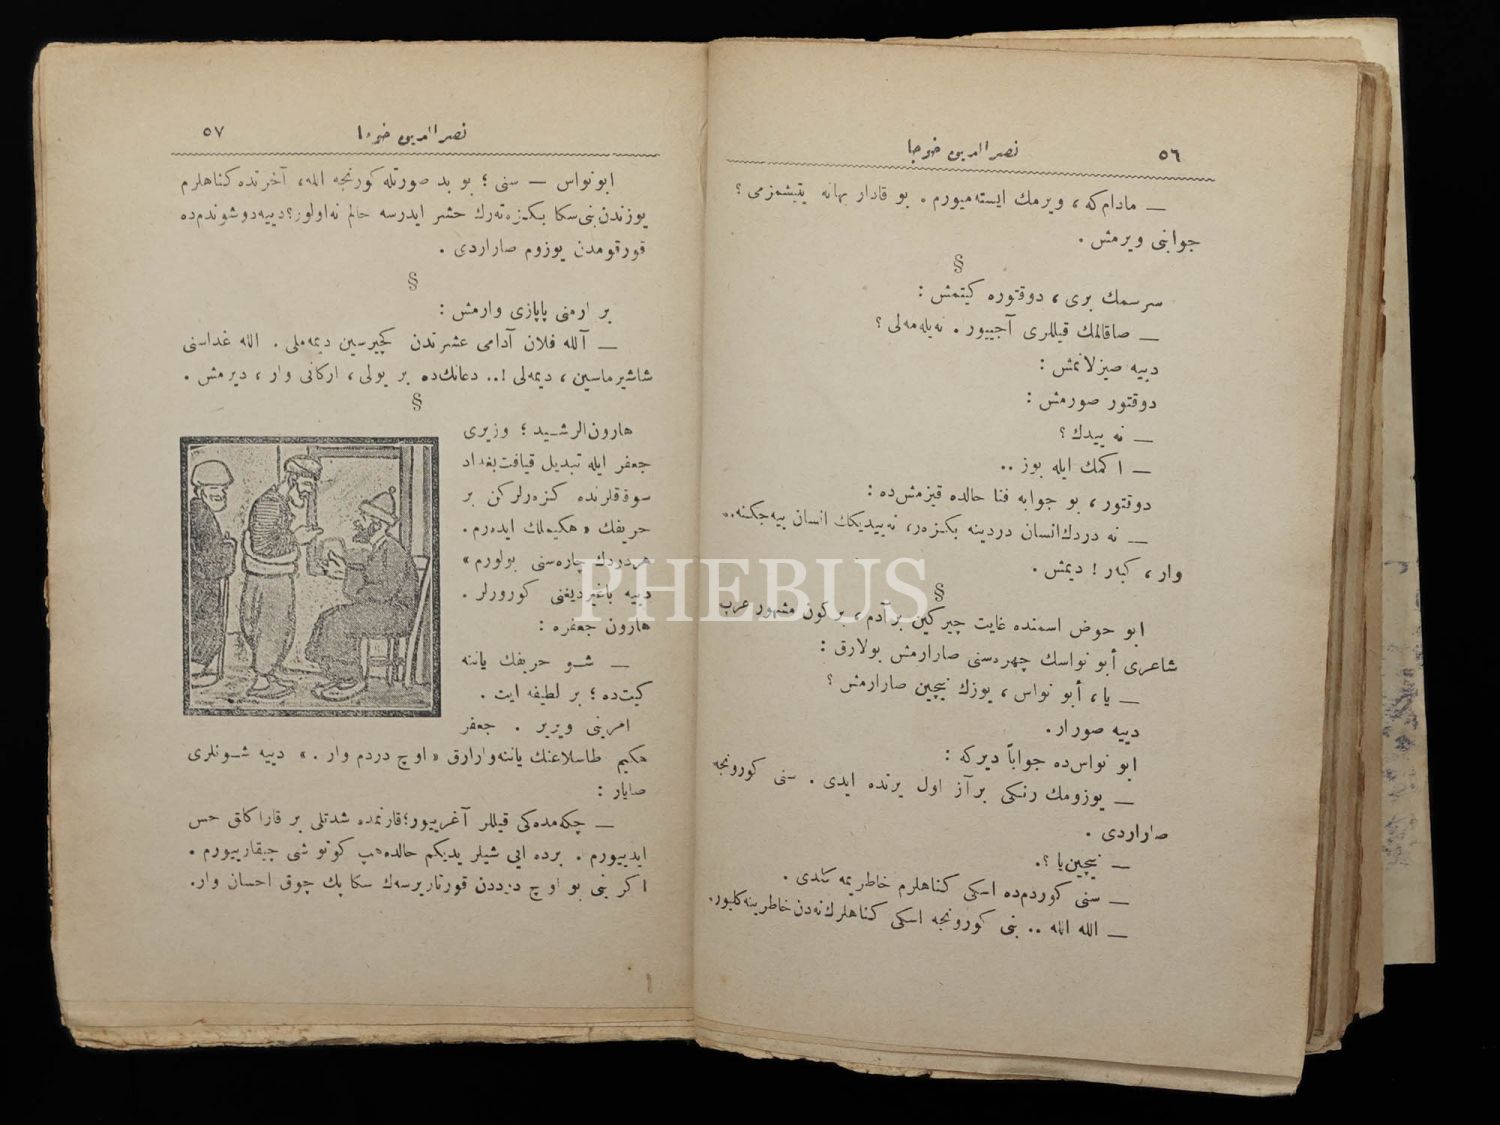 ٥٦
نصر الدین خوجا
— مادام‌كه ، ویرمك ایسته‌میورم . بو قادار بهانه یتیشمزمی ؟
جوابنی ویرمش .
§
سرسمك بری ، دوقتوره كیتمش :
— صاقالمك قیللری آجییور . نه‌یله‌مه‌لی ؟
دییه صیزلانمش :
دوقتور صورمش :
— نه ییدك ؟
— اكمك ایله بوز ..
دوقتور ، بو جوابه فنا حالده قیزمش‌ده :
— نه دردك انسان دردینه بكزه‌ر، نه‌ییدیكك انسان ییه‌جكنه..
وار ، كبه‌ر ! دیمش .
§
ابو حوض اسمنده غایت چیركین برآدم ، بركون مشهور عرب
شاعری أبو نواسك چهره‌سنی صارارمش بولارق :
— یا ، أبو نواس ، یوزك نیچین صارارمش ؟
دییه صورار.
ابو نواس‌ده جواباً دیركه :
— یوزومك رنكی برآز اول یرنده ایدی . سنی كورونجه
صاراردی .
— نیچین‌یا ؟.
— سنی كوردم‌ده اسكی كناهلرم خاطریمه كلدی .
— الله الله .. بنی كورونجه اسكی كناهلرك‌نه‌دن خاطرینه‌كلیور.
٥٧
نصر الدین خوجا
ابونواس — سنی ؛ بو بد صورتله كورنجه الله، آخرتده كناهلرم
یوزندن‌بنی‌سكا بكزه‌ته‌رك حشر ایدرسه حالم نه‌اولور؟دییه‌دوشوندم‌ده
قورقومدن یوزوم صاراردی .
§
بر ارمنی پاپازی وارمش :
— آلله فلان آدامی عشرتدن كچیرسین دیمه‌ملی . الله غداسنی
شاشیرماسین ، دیمه‌لی !.. دعانك‌ده بر یولی ، اركانی وار ، دیرمش .
§
هارون‌الرشید ؛ وزیری
جعفر ایله تبدیل قیافت‌بغداد
سوقاقلرنده كزه‌رلركن بر
حریفك « هكیملك ایده‌رم .
هردردك چاره‌سنی بولورم »
دییه باغیردیغنی كورورلر .
هارون جعفره :
— شو حریفك یاننه
كیت‌ده ؛ بر لطیفه ایت .
امرینی ویریر . جعفر
هكیم طاسلاغنك یاننه‌وارارق « اوچ دردم وار . » دییه شونلری
صایار :
— چكه‌مده‌كی قیللر آغرییور؛قارنمده شدتلی بر قاراكلق حس
ایدییورم . برده ایی شیلر یدیكم حالده‌هپ كوتو شی چیقارییورم .
اكر بنی بو اوچ دردن قورتاریرسه‌ك سكا پك چوق احسان وار.
PHEBUS